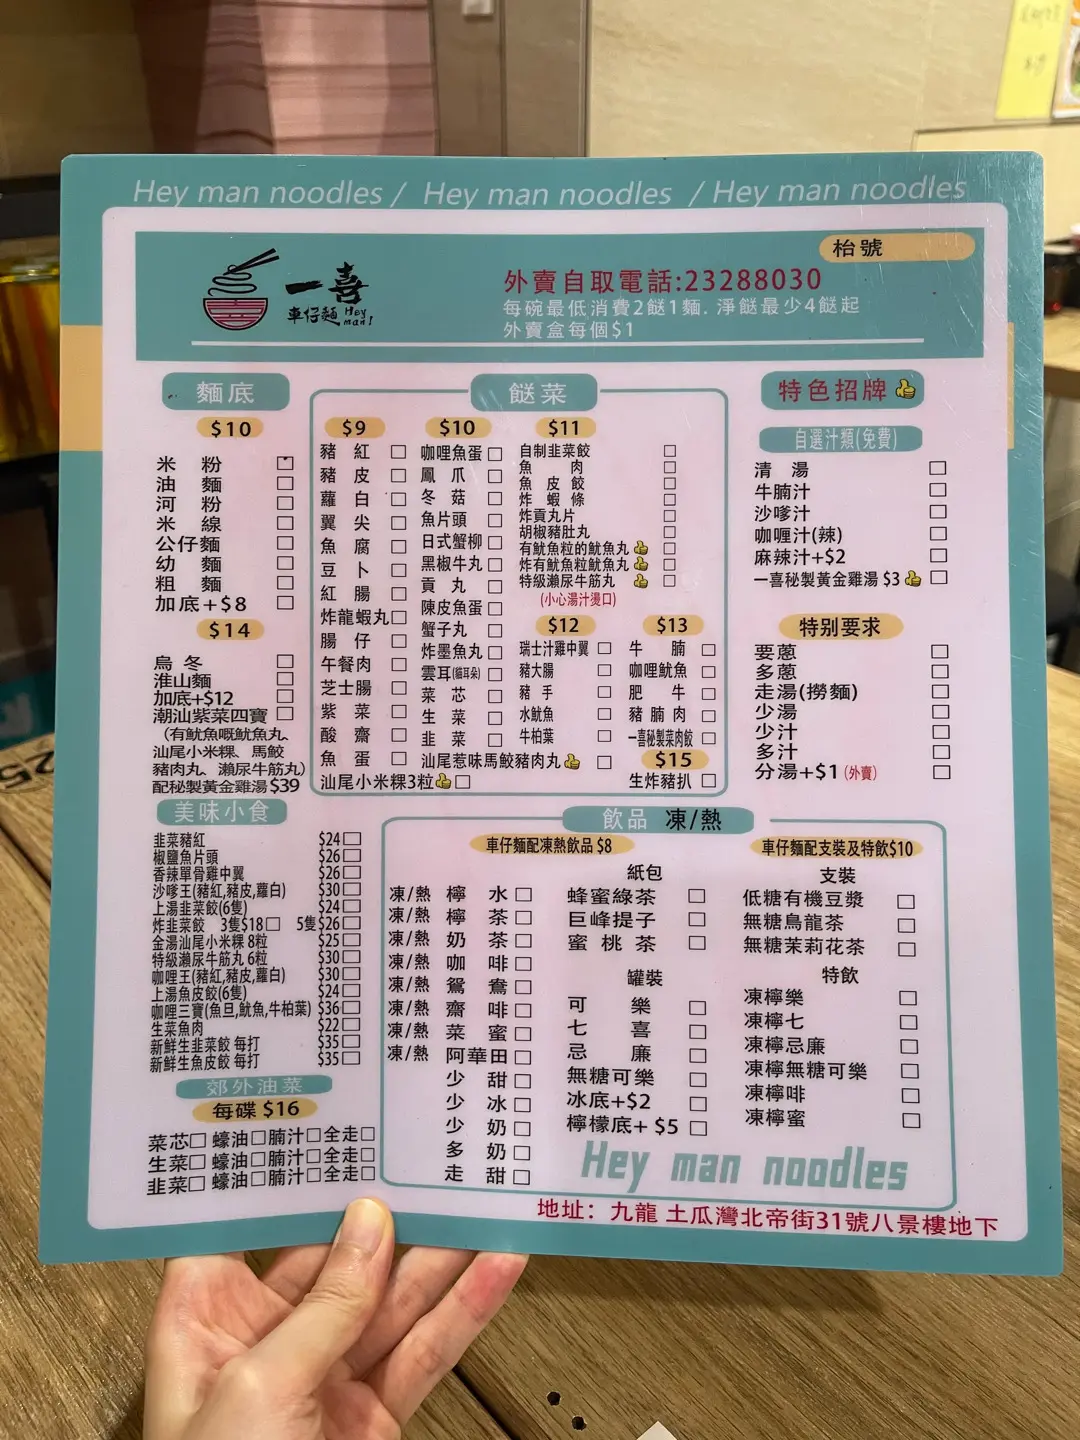 Hey man noodles / Hey man noodles / Hey man noodles
枱號
一喜
車仔麵 Hey man!
外賣自取電話:23288030
每碗最低消費2餸1麵. 淨餸最少4餸起
外賣盒每個$1
麵底
$10
米粉
油麵
河粉
米線
公仔麵
幼麵
粗麵
加底+$8
$14
烏冬
淮山麵
加底+$12
潮汕紫菜四寶
(有魷魚嘅魷魚丸、
汕尾小米粿、馬鮫
豬肉丸、瀨尿牛筋丸)
配秘製黃金雞湯$39
餸菜
$9
豬紅
豬皮
蘿白
翼尖
魚腐
豆卜
紅腸
炸龍蝦丸
腸仔
午餐肉
芝士腸
紫菜
酸齋
魚蛋
汕尾小米粿3粒
$10
咖哩魚蛋
鳳爪
冬菇
魚片頭
日式蟹柳
黑椒牛丸
貢丸
陳皮魚蛋
蟹子丸
炸墨魚丸
雲耳(貓耳朵)
菜芯
生菜
韭菜
汕尾惹味馬鮫豬肉丸
$11
自制韭菜餃
魚肉
魚皮餃
炸蝦條
炸貢丸片
胡椒豬肚丸
有魷魚粒的魷魚丸
炸有魷魚粒魷魚丸
特級瀨尿牛筋丸
(小心湯汁燙口)
$12
瑞士汁雞中翼
豬大腸
豬手
水魷魚
牛柏葉
$13
牛腩
咖哩魷魚
肥牛
豬腩肉
一喜秘製菜肉餃
$15
生炸豬扒
特色招牌
自選汁類(免費)
清湯
牛腩汁
沙嗲汁
咖喱汁(辣)
麻辣汁+$2
一喜秘製黃金雞湯 $3
特别要求
要蔥
多蔥
走湯(撈麵)
少湯
少汁
多汁
分湯+$1 (外賣)
美味小食
韭菜豬紅 $24
椒鹽魚片頭 $26
香辣單骨雞中翼 $26
沙嗲王(豬紅,豬皮,蘿白) $30
上湯韭菜餃(6隻) $24
炸韭菜餃 3隻$18 5隻$26
金湯汕尾小米粿 8粒 $25
特級瀨尿牛筋丸 6粒 $30
咖哩王(豬紅,豬皮,蘿白) $30
上湯魚皮餃(6隻) $24
咖哩三寶(魚旦,魷魚,牛柏葉) $36
生菜魚肉 $22
新鮮生韭菜餃 每打 $35
新鮮生魚皮餃 每打 $35
郊外油菜
每碟 $16
菜芯 蠔油 腩汁 全走
生菜 蠔油 腩汁 全走
韭菜 蠔油 腩汁 全走
飲品 凍/熱
車仔麵配凍熱飲品 $8
凍/熱 檸水
凍/熱 檸茶
凍/熱 奶茶
凍/熱 咖啡
凍/熱 鴛鴦
凍/熱 齋啡
凍/熱 菜蜜
凍/熱 阿華田
少甜
少冰
少奶
多奶
走甜
紙包
蜂蜜綠茶
巨峰提子
蜜桃茶
罐裝
可樂
七喜
忌廉
無糖可樂
冰底+$2
檸檬底+ $5
車仔麵配支裝及特飲$10
支裝
低糖有機豆漿
無糖烏龍茶
無糖茉莉花茶
特飲
凍檸樂
凍檸七
凍檸忌廉
凍檸無糖可樂
凍檸啡
凍檸蜜
Hey man noodles
地址: 九龍 土瓜灣北帝街31號八景樓地下